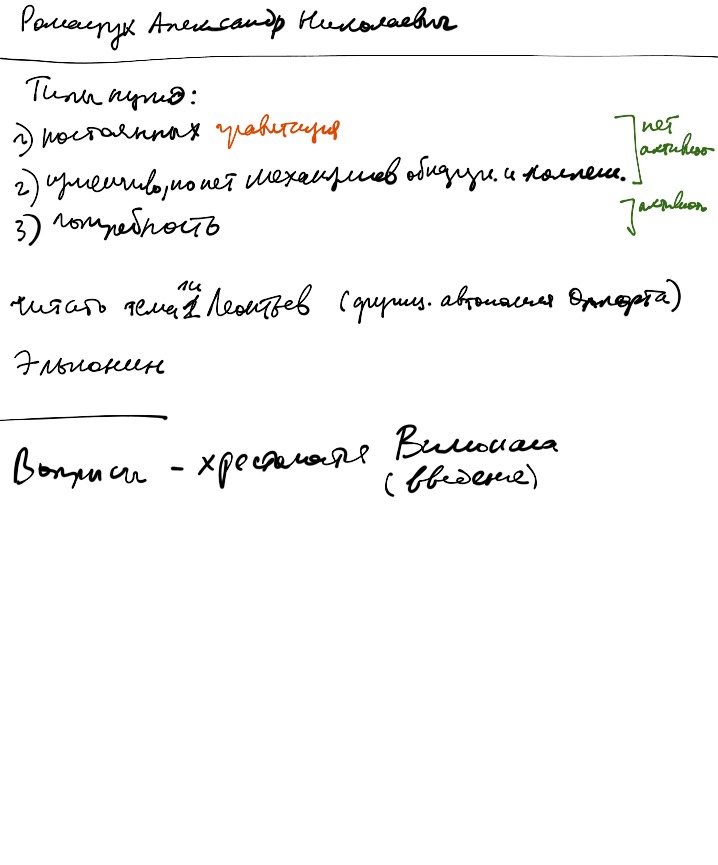 Ромащук Александр Николаевич
Типы нужд:
1) постоянных гравитация
2) изменчиво, но нет механизмов обнаруж. и компенс.
] нет активности
3) потребность
] активность
читать тема 11 Леонтьев (функц. автономия Олпорта)
Эльконин
Вопросы - хрестоматия Вилюнаса
(введение)